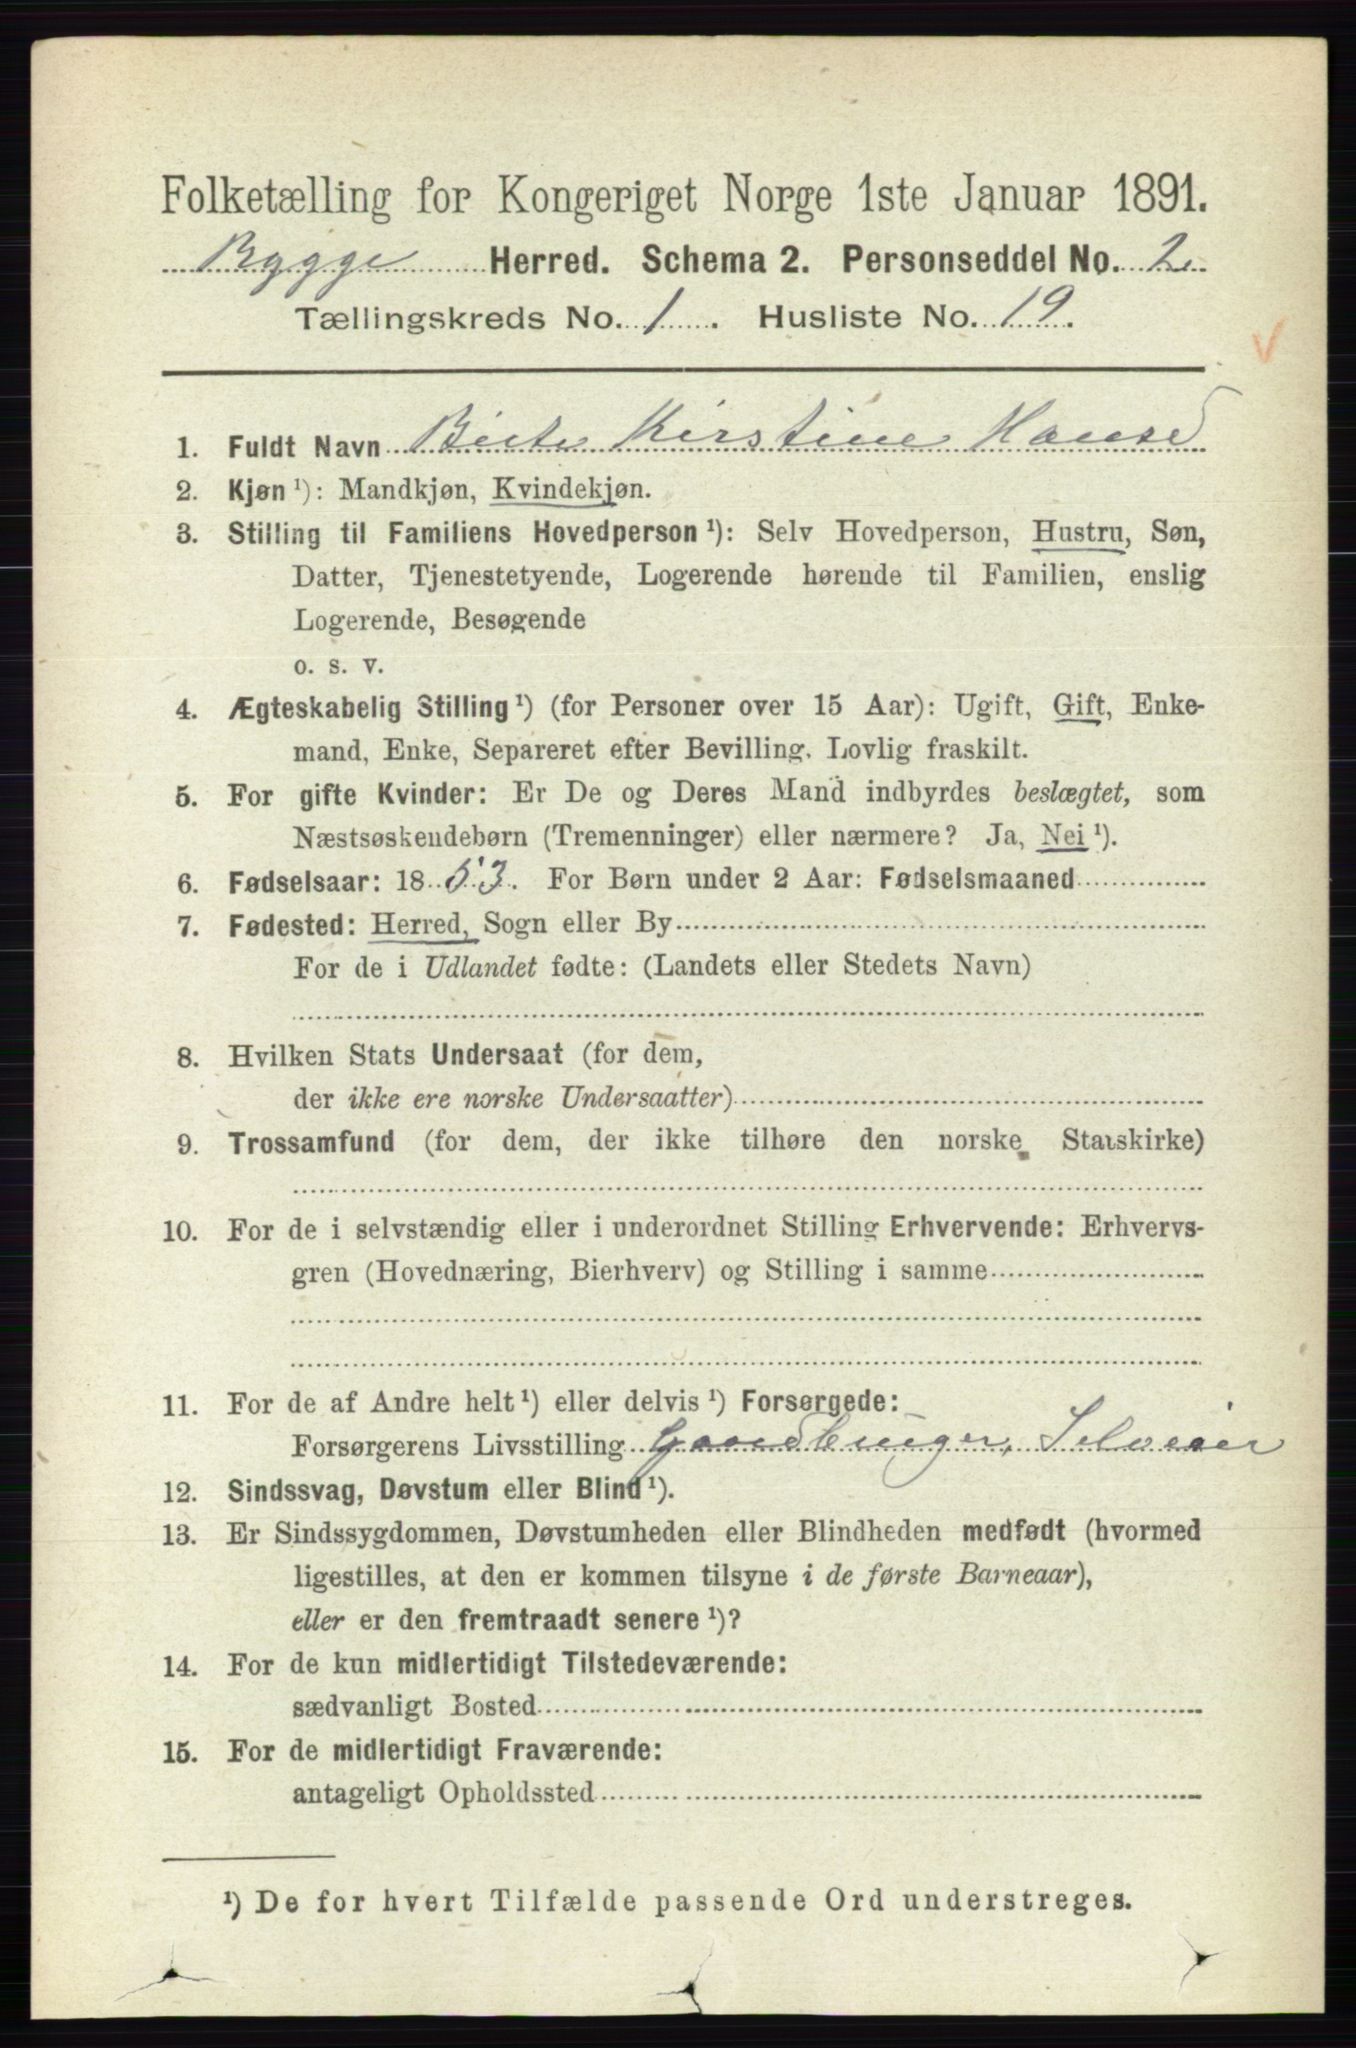 Folketælling for Kongeriget Norge 1ste Januar 1891.
Rygge Herred. Schema 2. Personseddel No. 2
Tællingskreds No. 1. Husliste No. 19.
1. Fuldt Navn Kirstine
2. Kjøn ¹): Mandkjøn, Kvindekjøn.
3. Stilling til Familiens Hovedperson ¹): Selv Hovedperson, Hustru, Søn,
Datter, Tjenestetyende, Logerende hørende til Familien, enslig
Logerende, Besøgende
o. s. v.
4. Ægteskabelig Stilling ¹) (for Personer over 15 Aar): Ugift, Gift, Enke-
mand, Enke, Separeret efter Bevilling. Lovlig fraskilt.
5. For gifte Kvinder: Er De og Deres Mand indbyrdes beslægtet, som
Næstsøskendebørn (Tremenninger) eller nærmere? Ja, Nei ¹).
6. Fødselsaar: 1853. For Børn under 2 Aar: Fødselsmaaned
7. Fødested: Herred, Sogn eller By
For de i Udlandet fødte: (Landets eller Stedets Navn)
8. Hvilken Stats Undersaat (for dem,
der ikke ere norske Undersaatter)
9. Trossamfund (for dem, der ikke tilhøre den norske Statskirke)
10. For de i selvstændig eller i underordnet Stilling Erhvervende: Erhvervs-
gren (Hovednæring, Bierhverv) og Stilling i samme
11. For de af Andre helt ¹) eller delvis ¹) Forsørgede:
Forsørgerens Livsstilling Gaardbruger, Selveier
12. Sindssvag, Døvstum eller Blind ¹).
13. Er Sindssygdommen, Døvstumheden eller Blindheden medfødt (hvormed
ligestilles, at den er kommen tilsyne i de første Barneaar),
eller er den fremtraadt senere ¹)?
14. For de kun midlertidigt Tilstedeværende:
sædvanligt Bosted
15. For de midlertidigt Fraværende:
antageligt Opholdssted
¹) De for hvert Tilfælde passende Ord understreges.